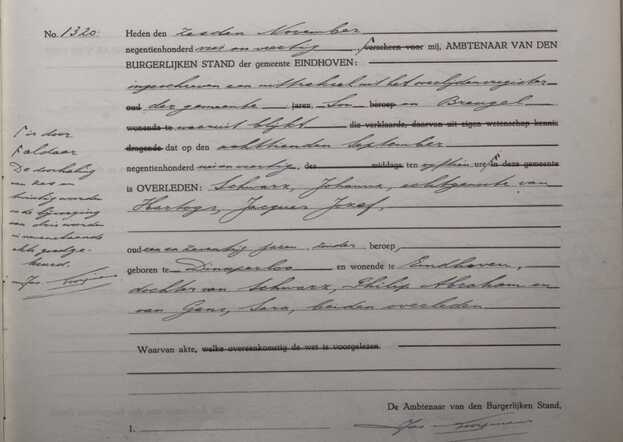 No. 1320.
Heden den zesden November
negentienhonderd vier en veertig verscheen voor mij, AMBTENAAR VAN DEN
BURGERLIJKEN STAND der gemeente EINDHOVEN:
ingeschreven een uittreksel uit het overlijdensregister
oud der gemeente jaren, Son beroep en Breugel
wonende te waaruit blijkt die verklaarde, daarvan uit eigen wetenschap kennis
dragende dat op den achttienden September
negentienhonderd vier en veertig, des middags ten vijftien ure, in deze gemeente
is OVERLEDEN: Schwarz, Johanna, echtgenoote van
Hartogs, Jacques Jozef,
oud een en zeventig jaren, zonder beroep,
geboren te Dinxperloo en wonende te Eindhoven,
dochter van Schwarz, Philip Abraham en
van Gans, Sara, beiden overleden
Waarvan akte, welke overeenkomstig de wet is voorgelezen.
De Ambtenaar van den Burgerlijken Stand,
1.
is door
De doorhaling
van zes en
twintig woorden
en de bijvoeging
van drie woorden
akte goedge-
keurd.